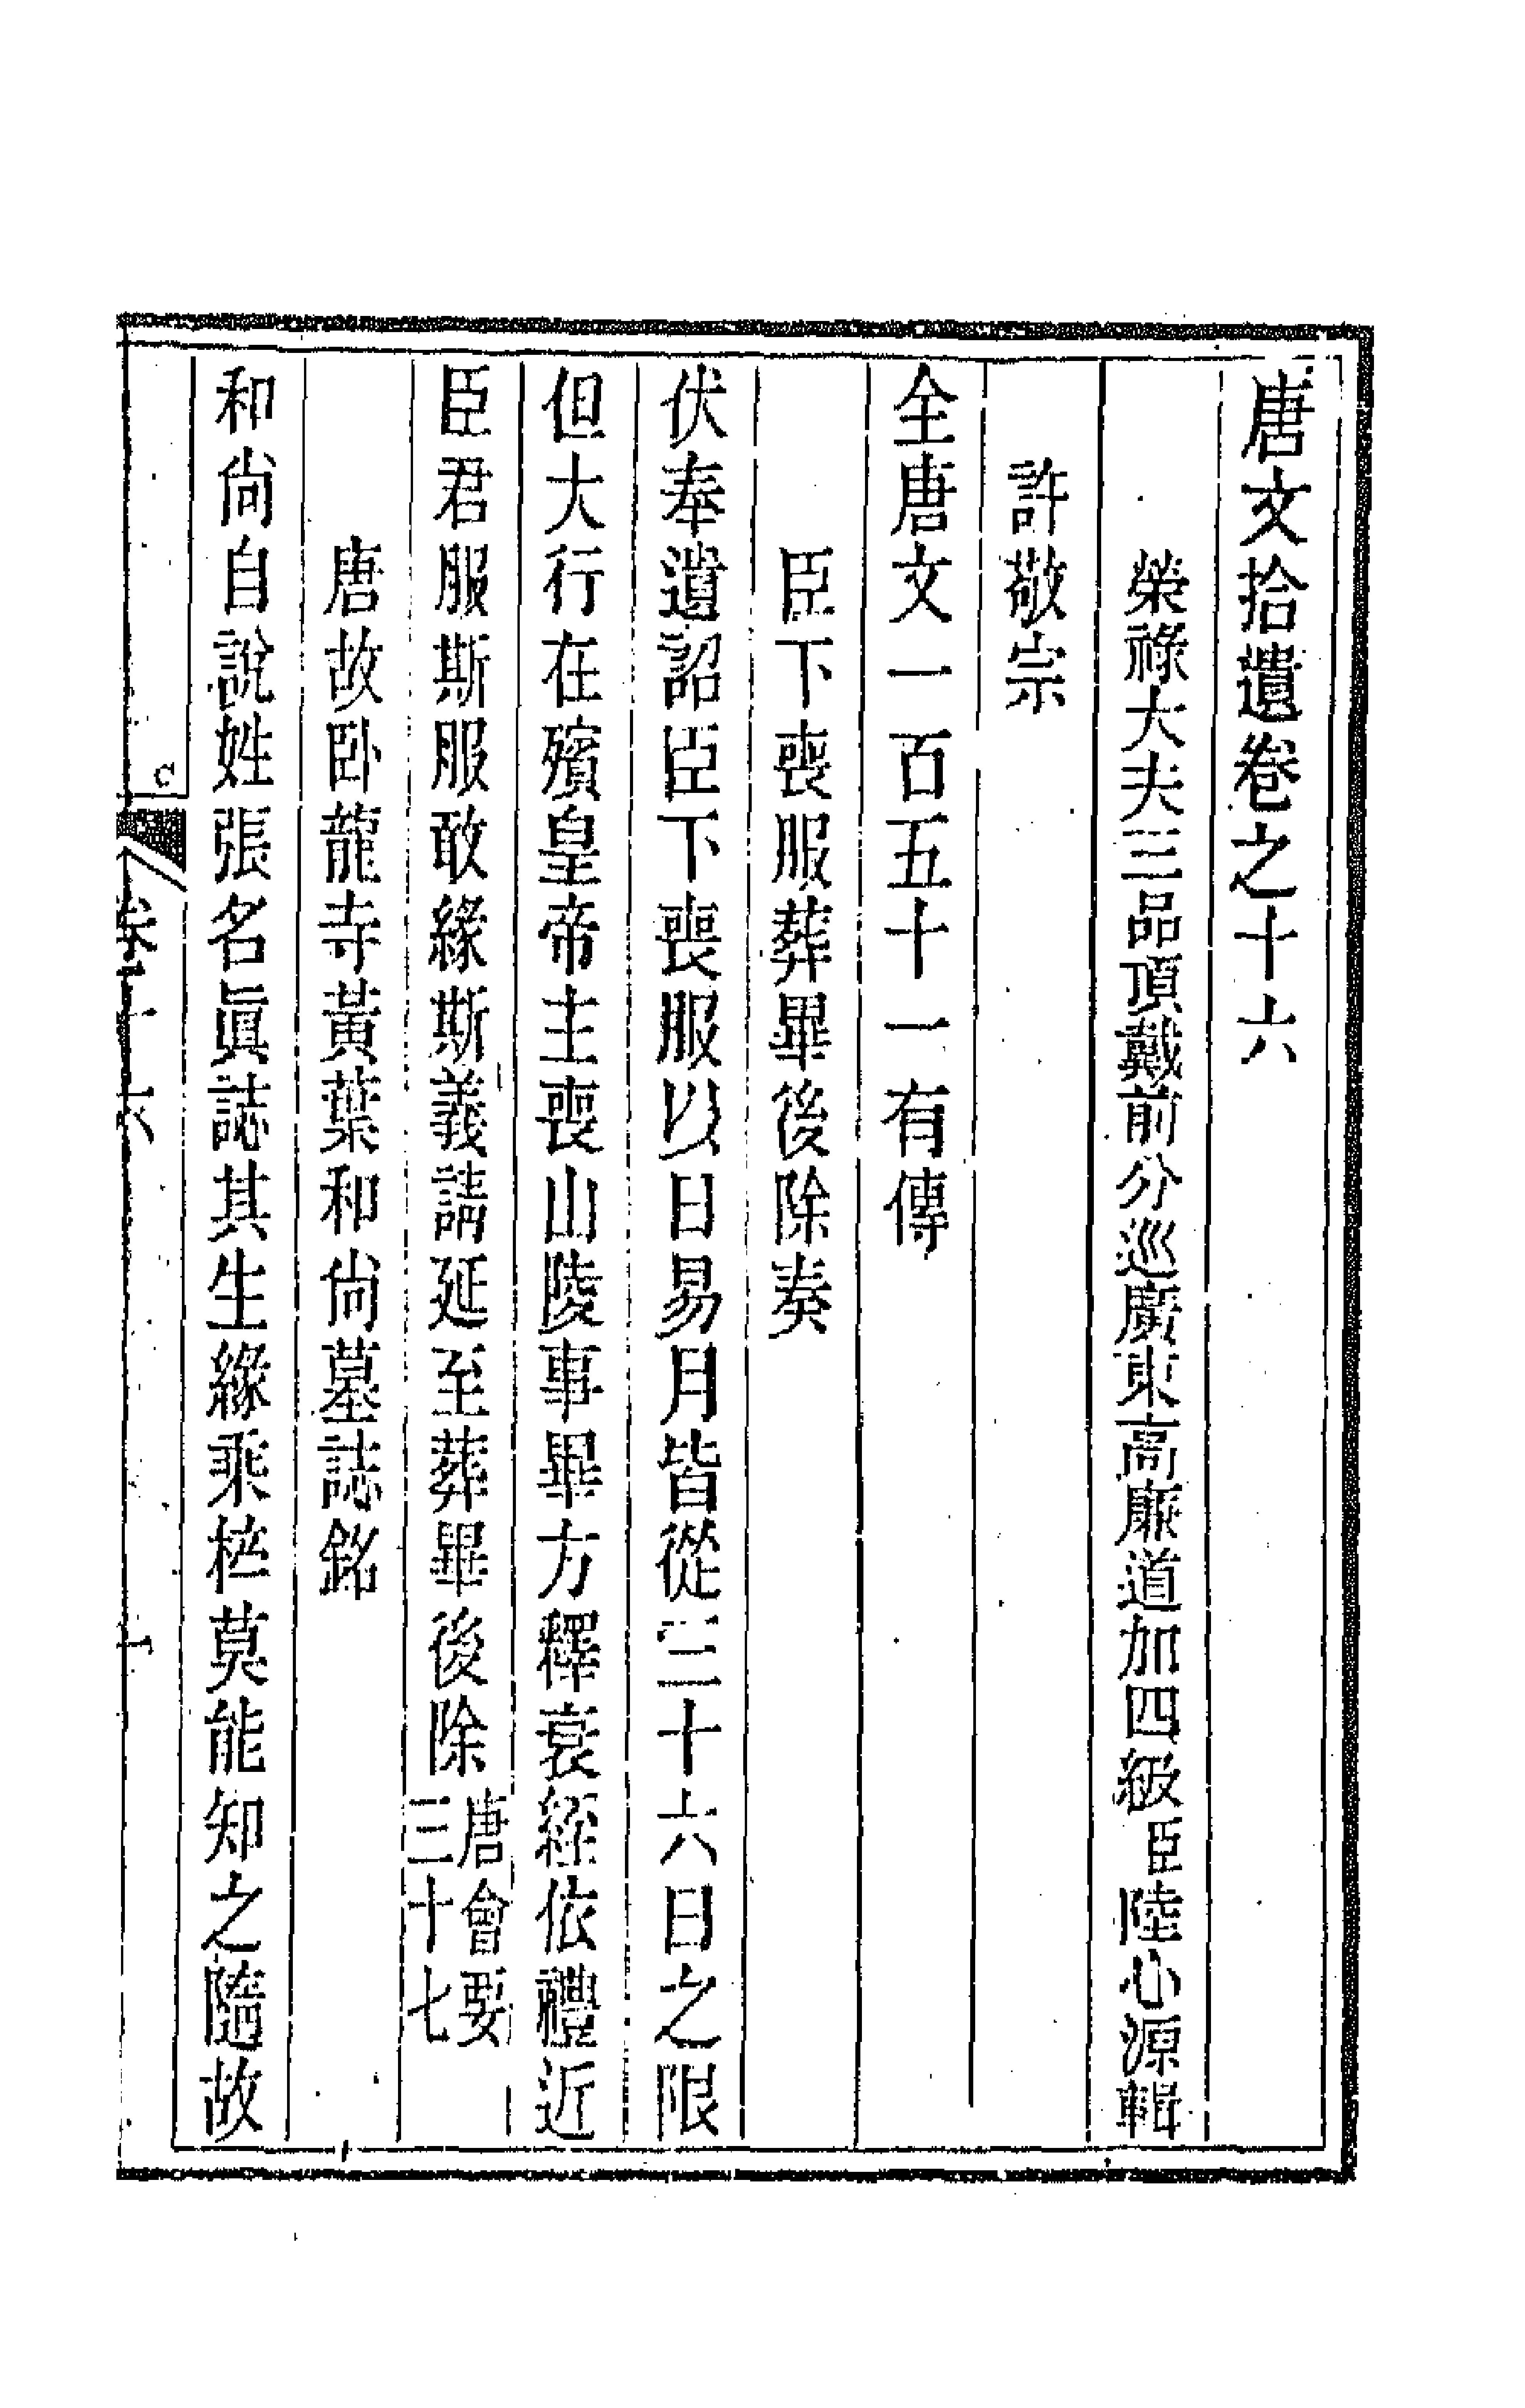 唐文拾遺卷之十六
榮祿大夫三品頂戴前分巡廣東高廉道加四級臣陸心源輯
許敬宗
全唐文一百五十一有傳
臣下喪服葬畢後除奏
伏奉遺詔臣下喪服以日易月皆從三十六日之限
但大行在殯皇帝主喪山陵事畢方釋衰絰依禮近
臣君服斯服敢緣斯義請延至葬畢後除唐會要三十七
唐故卧龍寺黃葉和尙墓誌銘
和尙自說姓張名眞誌其生緣乘桮莫能知之隨故
卷十六
一